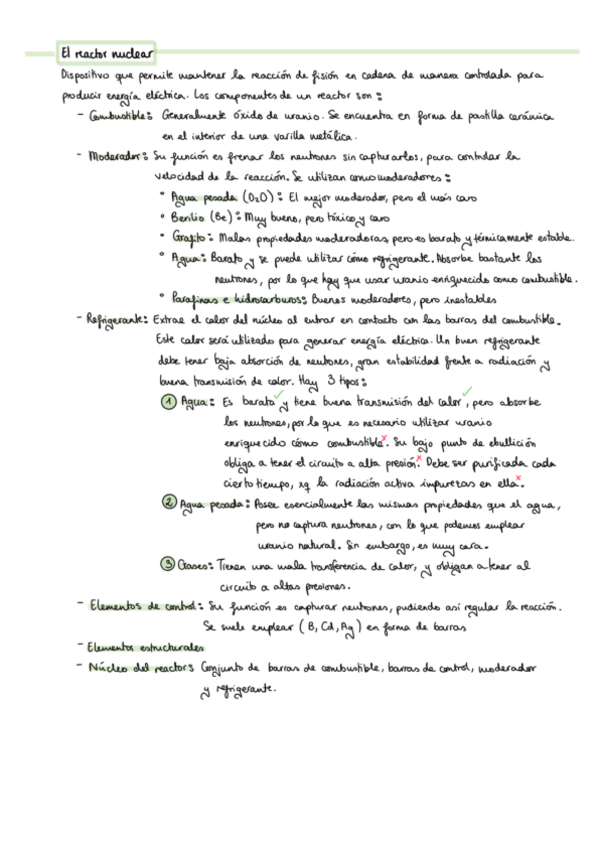 El reactor nuclear
Dispositivo que permite mantener la reacción de fisión en cadena de manera controlada para
producir energía eléctrica. Los componentes de un reactor son:
- Combustible: Generalmente óxido de uranio. Se encuentra en forma de pastilla cerámica
en el interior de una varilla metálica.
- Moderador: Su función es frenar los neutrones sin capturarlos, para controlar la
velocidad de la reacción. Se utilizan como moderadores:
• Agua pesada (D2O): El mejor moderador, pero el más caro
• Berilio (Be): Muy bueno, pero tóxico y caro
• Grafito: Malas propiedades moderadoras, pero es barato y térmicamente estable.
• Agua: Barato y se puede utilizar cómo refrigerante. Absorbe bastante los
neutrones, por lo que hay que usar uranio enriquecido como combustible.
• Parafinas e hidrocarburos: Buenos moderadores, pero inestables
- Refrigerante: Extrae el calor del núcleo al entrar en contacto con las barras del combustible.
Este calor será utilizado para generar energía eléctrica. Un buen refrigerante
debe tener baja absorción de neutrones, gran estabilidad frente a radiación y
buena transmisión de calor. Hay 3 tipos:
1 Agua: Es barata ✓ y tiene buena transmisión del calor ✓, pero absorbe
los neutrones, por lo que es necesario utilizar uranio
enriquecido cómo combustible x. Su bajo punto de ebullición
obliga a tener el circuito a alta presión x. Debe ser purificada cada
cierto tiempo, xq la radiación activa impurezas en ella x.
2 Agua pesada: Posee esencialmente las mismas propiedades que el agua,
pero no captura neutrones, con lo que podemos emplear
uranio natural. Sin embargo, es muy cara.
3 Gases: Tienen una mala transferencia de calor, y obligan a tener al
circuito a altas presiones.
- Elementos de control: Su función es capturar neutrones, pudiendo así regular la reacción.
Se suele emplear (B, Cd, Ag) en forma de barras
- Elementos estructurales
- Núcleo del reactor: Conjunto de barras de combustible, barras de control, moderador
y refrigerante.